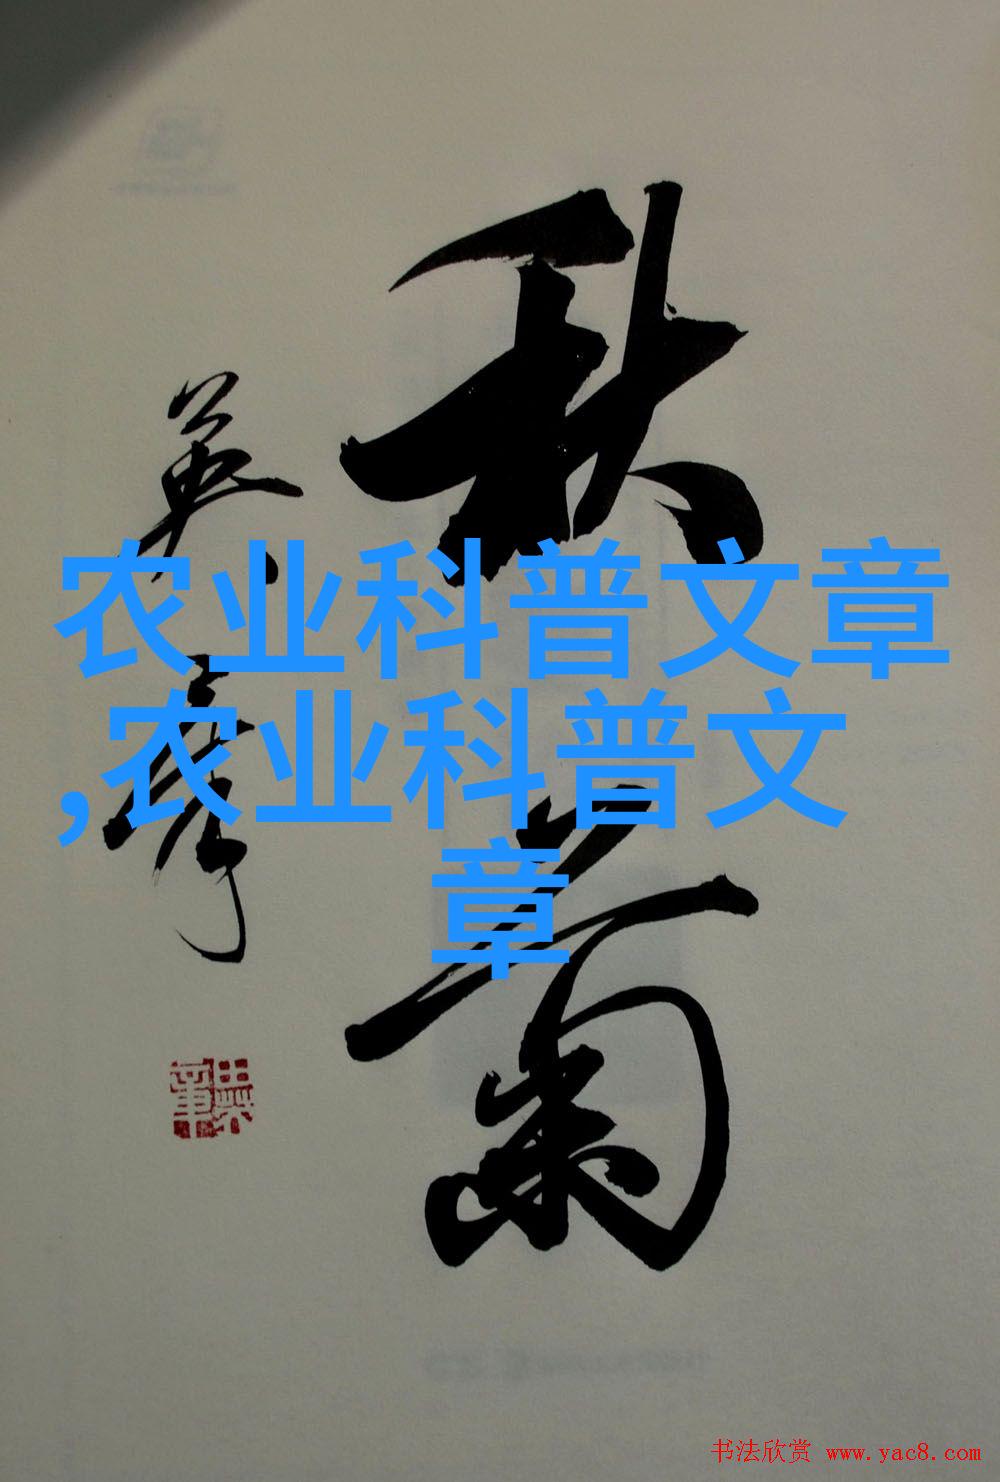 秋菊
农业科普文章
,农业科普文
章
书法欣赏 www.yac8.com